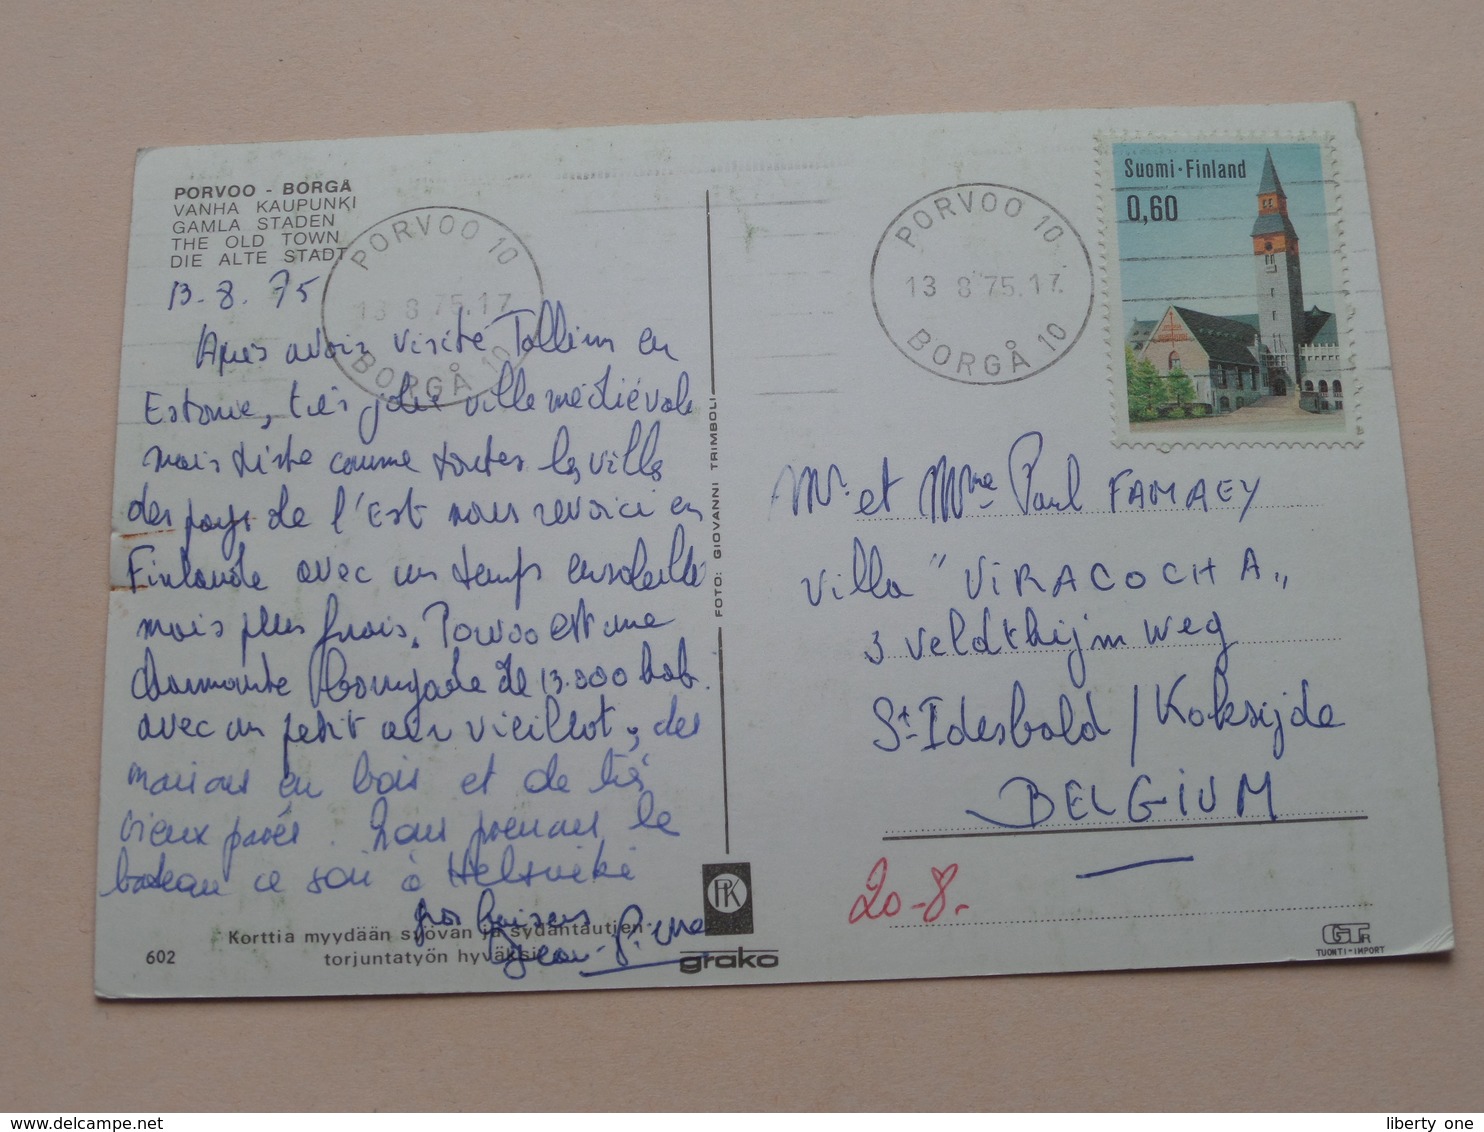 PORVOO - BORGÅ
VANHA KAUPUNKI
GAMLA STADEN
THE OLD TOWN
DIE ALTE STADT
13.8.75
Après avoir visité Tallinn en
Estonie, très jolie ville médiévale
mais triste comme toutes les villes
des pays de l'Est nous revoici en
Finlande avec un temps ensoleillé
mais plus frais. Porvoo est une
charmante bourgade de 13.000 hab.
avec un petit air vieillot, des
maisons en bois et de très
vieux pavés. Nous prenons le
bateau ce soir à Helsinki
gros baisers
Jean-Pierre
Korttia myydään sydän ja sydäntautien
torjuntatyön hyväksi
602
PORVOO 10
13 8 75.17
BORGÅ 10
FOTO: GIOVANNI TRIMBOLI
PK
grako
PORVOO 10.
13 8 75.17.
BORGÅ 10
Suomi·Finland
0,60
Mr. et Mme Paul FAMAEY
Villa "VIRACOCHA"
3 Veldthijmweg
St Idesbald / Koksijde
BELGIUM
20-8-
GTR
TUONTI-IMPORT
liberty one